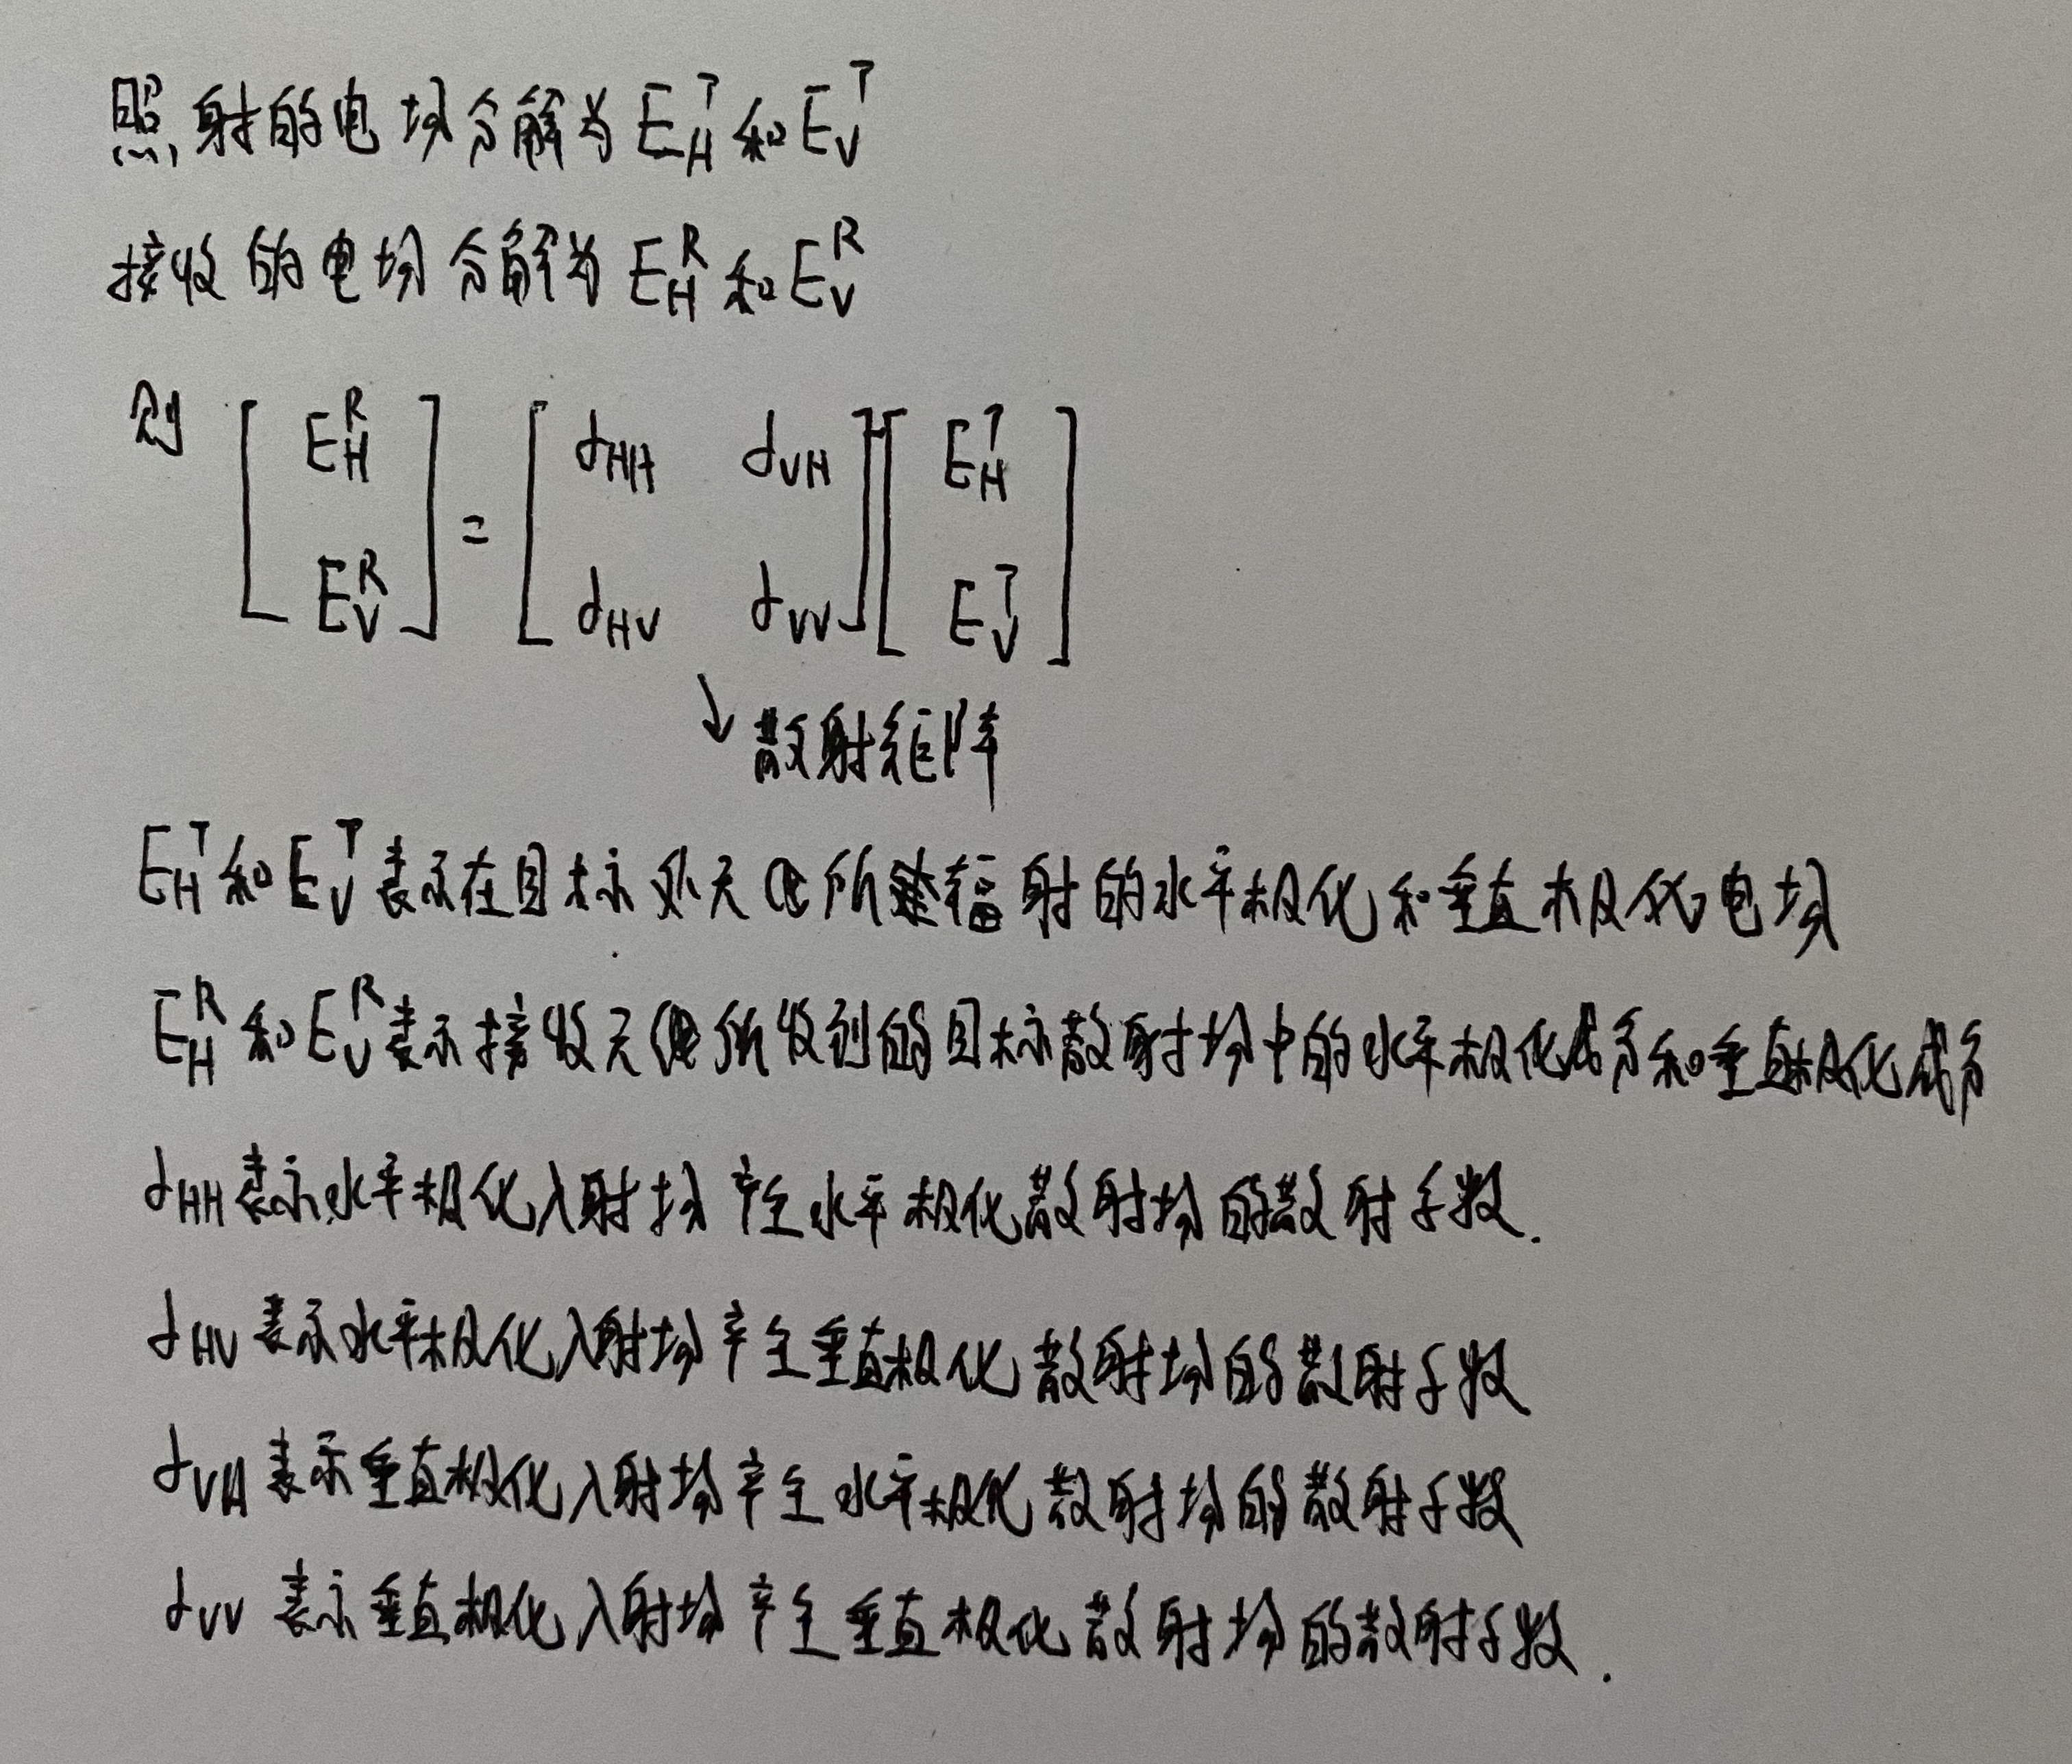 照射的电场分解为 E_H^T 和 E_V^T
接收的电场分解为 E_H^R 和 E_V^R
则 [ E_H^R ; E_V^R ] = [ d_HH d_VH ; d_HV d_VV ] [ E_H^T ; E_V^T ]
↓ 散射矩阵
E_H^T 和 E_V^T 表示在目标处天线所辐射的水平极化和垂直极化电场
E_H^R 和 E_V^R 表示接收天线所收到的目标散射场中的水平极化成分和垂直极化成分
d_HH 表示水平极化入射场产生水平极化散射场的散射系数.
d_HV 表示水平极化入射场产生垂直极化散射场的散射系数
d_VH 表示垂直极化入射场产生水平极化散射场的散射系数
d_VV 表示垂直极化入射场产生垂直极化散射场的散射系数.